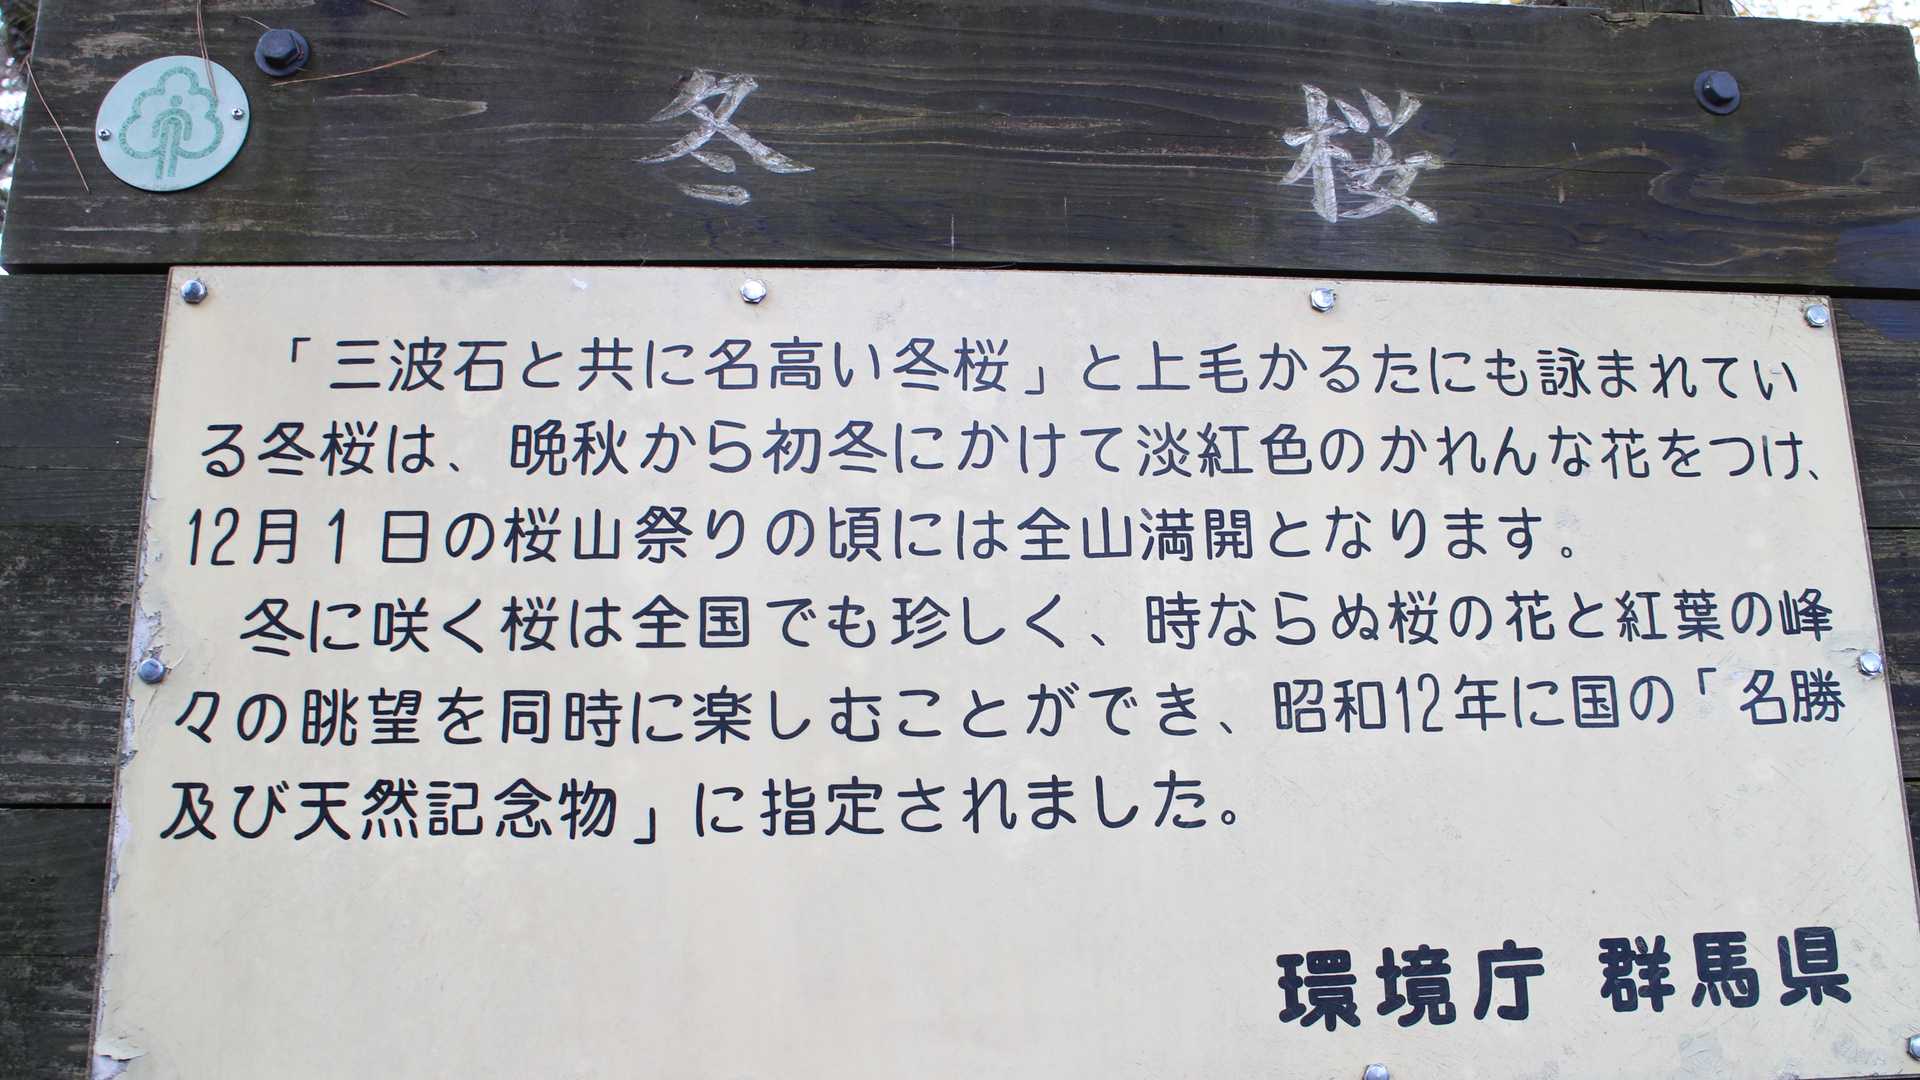 冬桜
「三波石と共に名高い冬桜」と上毛かるたにも詠まれてい
る冬桜は、晩秋から初冬にかけて淡紅色のかれんな花をつけ、
12月1日の桜山祭りの頃には全山満開となります。
冬に咲く桜は全国でも珍しく、時ならぬ桜の花と紅葉の峰
々の眺望を同時に楽しむことができ、昭和12年に国の「名勝
及び天然記念物」に指定されました。
環境庁 群馬県